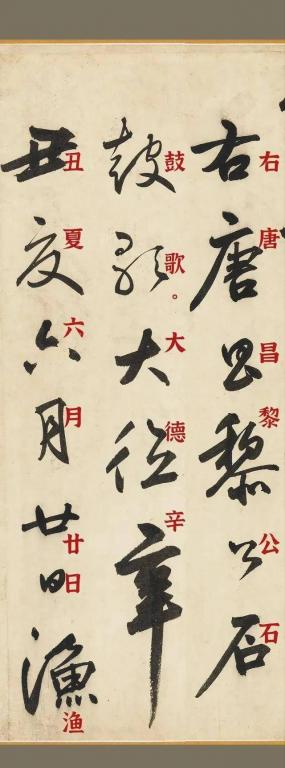 右唐昌黎公石
鼓歌。大德辛
丑夏六月廿日漁